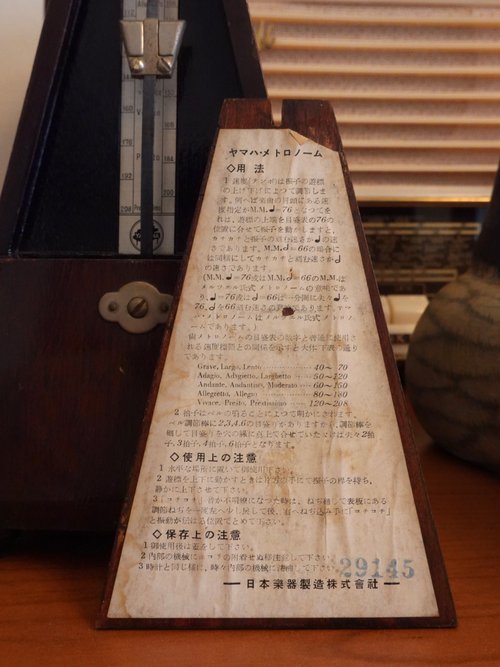 ヤマハ・メトロノーム
◇用法
1 速度(テンポ)は振子の遊標
の上げ下げによつて調節しま
す。例へば楽曲の冒頭にある速
度指定がM.M.♩=76となつてを
れば、遊標の上端を目盛表の76の
位置に合せて振子を動かしますと、
カチカチと振子の刻む速さが♩の速
さであります。M.M.♩=66の場合に
は同様にしてカチカチと刻む速さが♩
の速さであります。
(M.M.♩=76又はM.M.♩=66のM.M.は
メルツェル氏式メトロノームの意味であ
り、♩=76又は♩=66は一分間に夫々♩を
76、♩を66
メトロノ
ームであります。)
尚メトロノームの目盛表の数字と普通に使用され
る速度標語との関係を示すと大体下表の通り
であります。
Grave, Largo, Lento 40~70
Adagio, Adagietto, Larghetto 50~120
Andante, Andantino, Moderato 60~150
Allegretto, Allegro 80~180
Vivace, Presto, Prestissimo 120~208
2 拍子はベルの鳴ることによつて明かにされます。
ベル調節棒に2,3,4,6の目盛りがありますから、調節棒を
動して目盛りを穴の縁に直上で合せていたゞけば夫々2拍
子、3拍子、4拍子、6拍子となります。
◇使用上の注意
1 水平な場所に置いて御使用下さい。
2 遊標を上下に動かすときは必ず左の手にて振子の棒を持ち、
静かに上下させて下さい。
3「コチコチ」音が不明瞭になつた時は、ねぢ廻しで表板にある
調節ねぢを一度左へ少し戻して後、右へねぢ込み丁度「コチコチ」
と振動が伝はる位置でとめて下さい。
◇保存上の注意
1 御使用後は蓋をして下さい。
2 内部の機械にホコリの附着せぬ様注意して下さい。
3 時計と同じ様に、時々内部の機械に注油して下さい。
29145
日本楽器製造株式會社